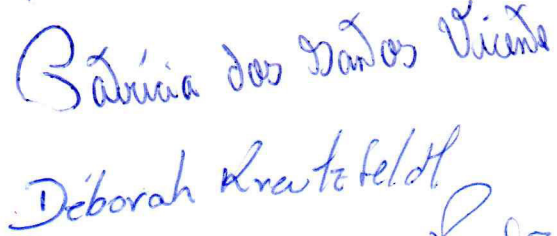 Patrícia dos Santos Vicente
Déborah Kreutzfeldt